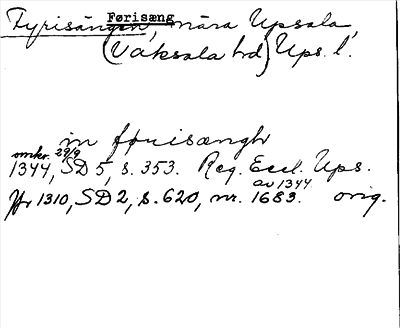 Fyrisängen, Førisæng nära Upsala,
(Vaksala hd) Ups. l.
in førisængh
omkr. 29/9
1344, SD 5, s. 353. Reg. Eccl. Ups.
av 1344
Jfr 1310, SD 2, s. 620, nr. 1683. orig.